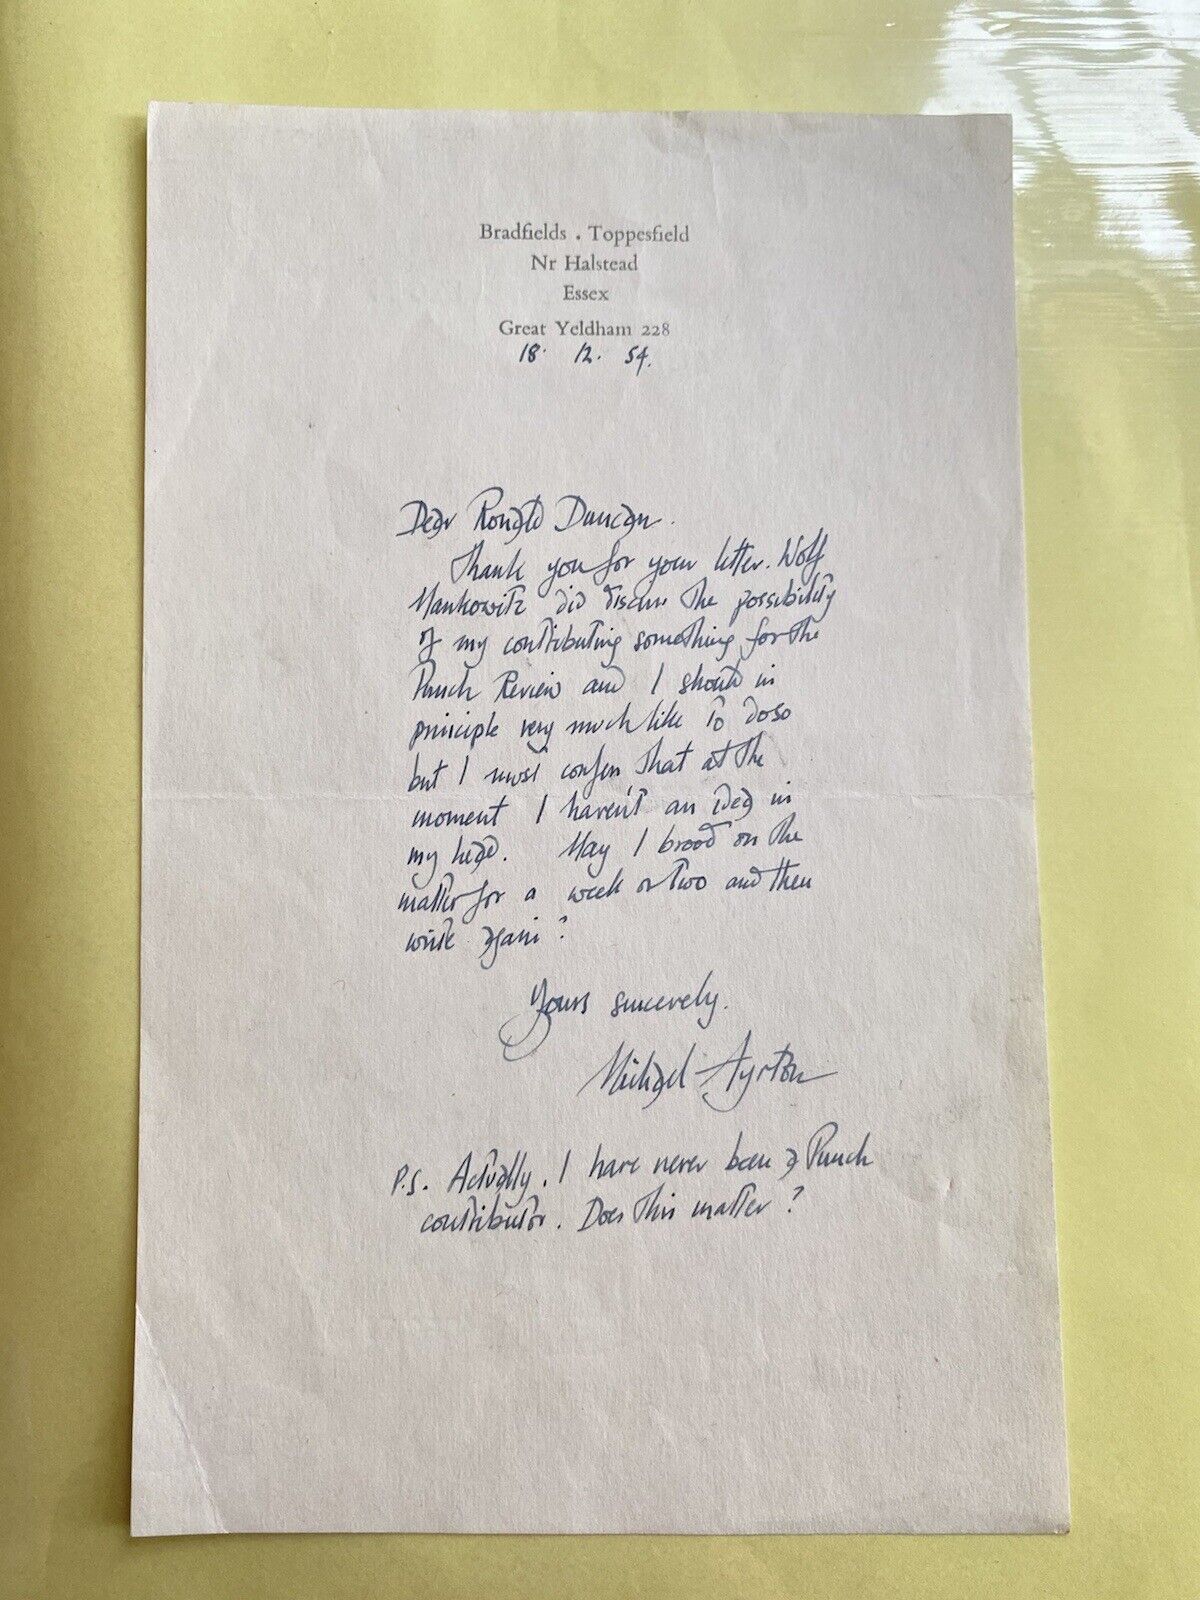 Bradfields . Toppesfield
Nr Halstead
Essex
Great Yeldham 228
18. 12. 54.
Dear Ronald Duncan.
Thank you for your letter. Wolf
Mankowitz did discuss the possibility
of my contributing something for the
Punch Review and I should in
principle very much like to do so
but I must confess that at the
moment I haven't an idea in
my head. May I brood on the
matter for a week or two and then
write again?
Yours sincerely.
Michael Ayrton
P.S. Actually, I have never been a Punch
contributor. Does this matter?